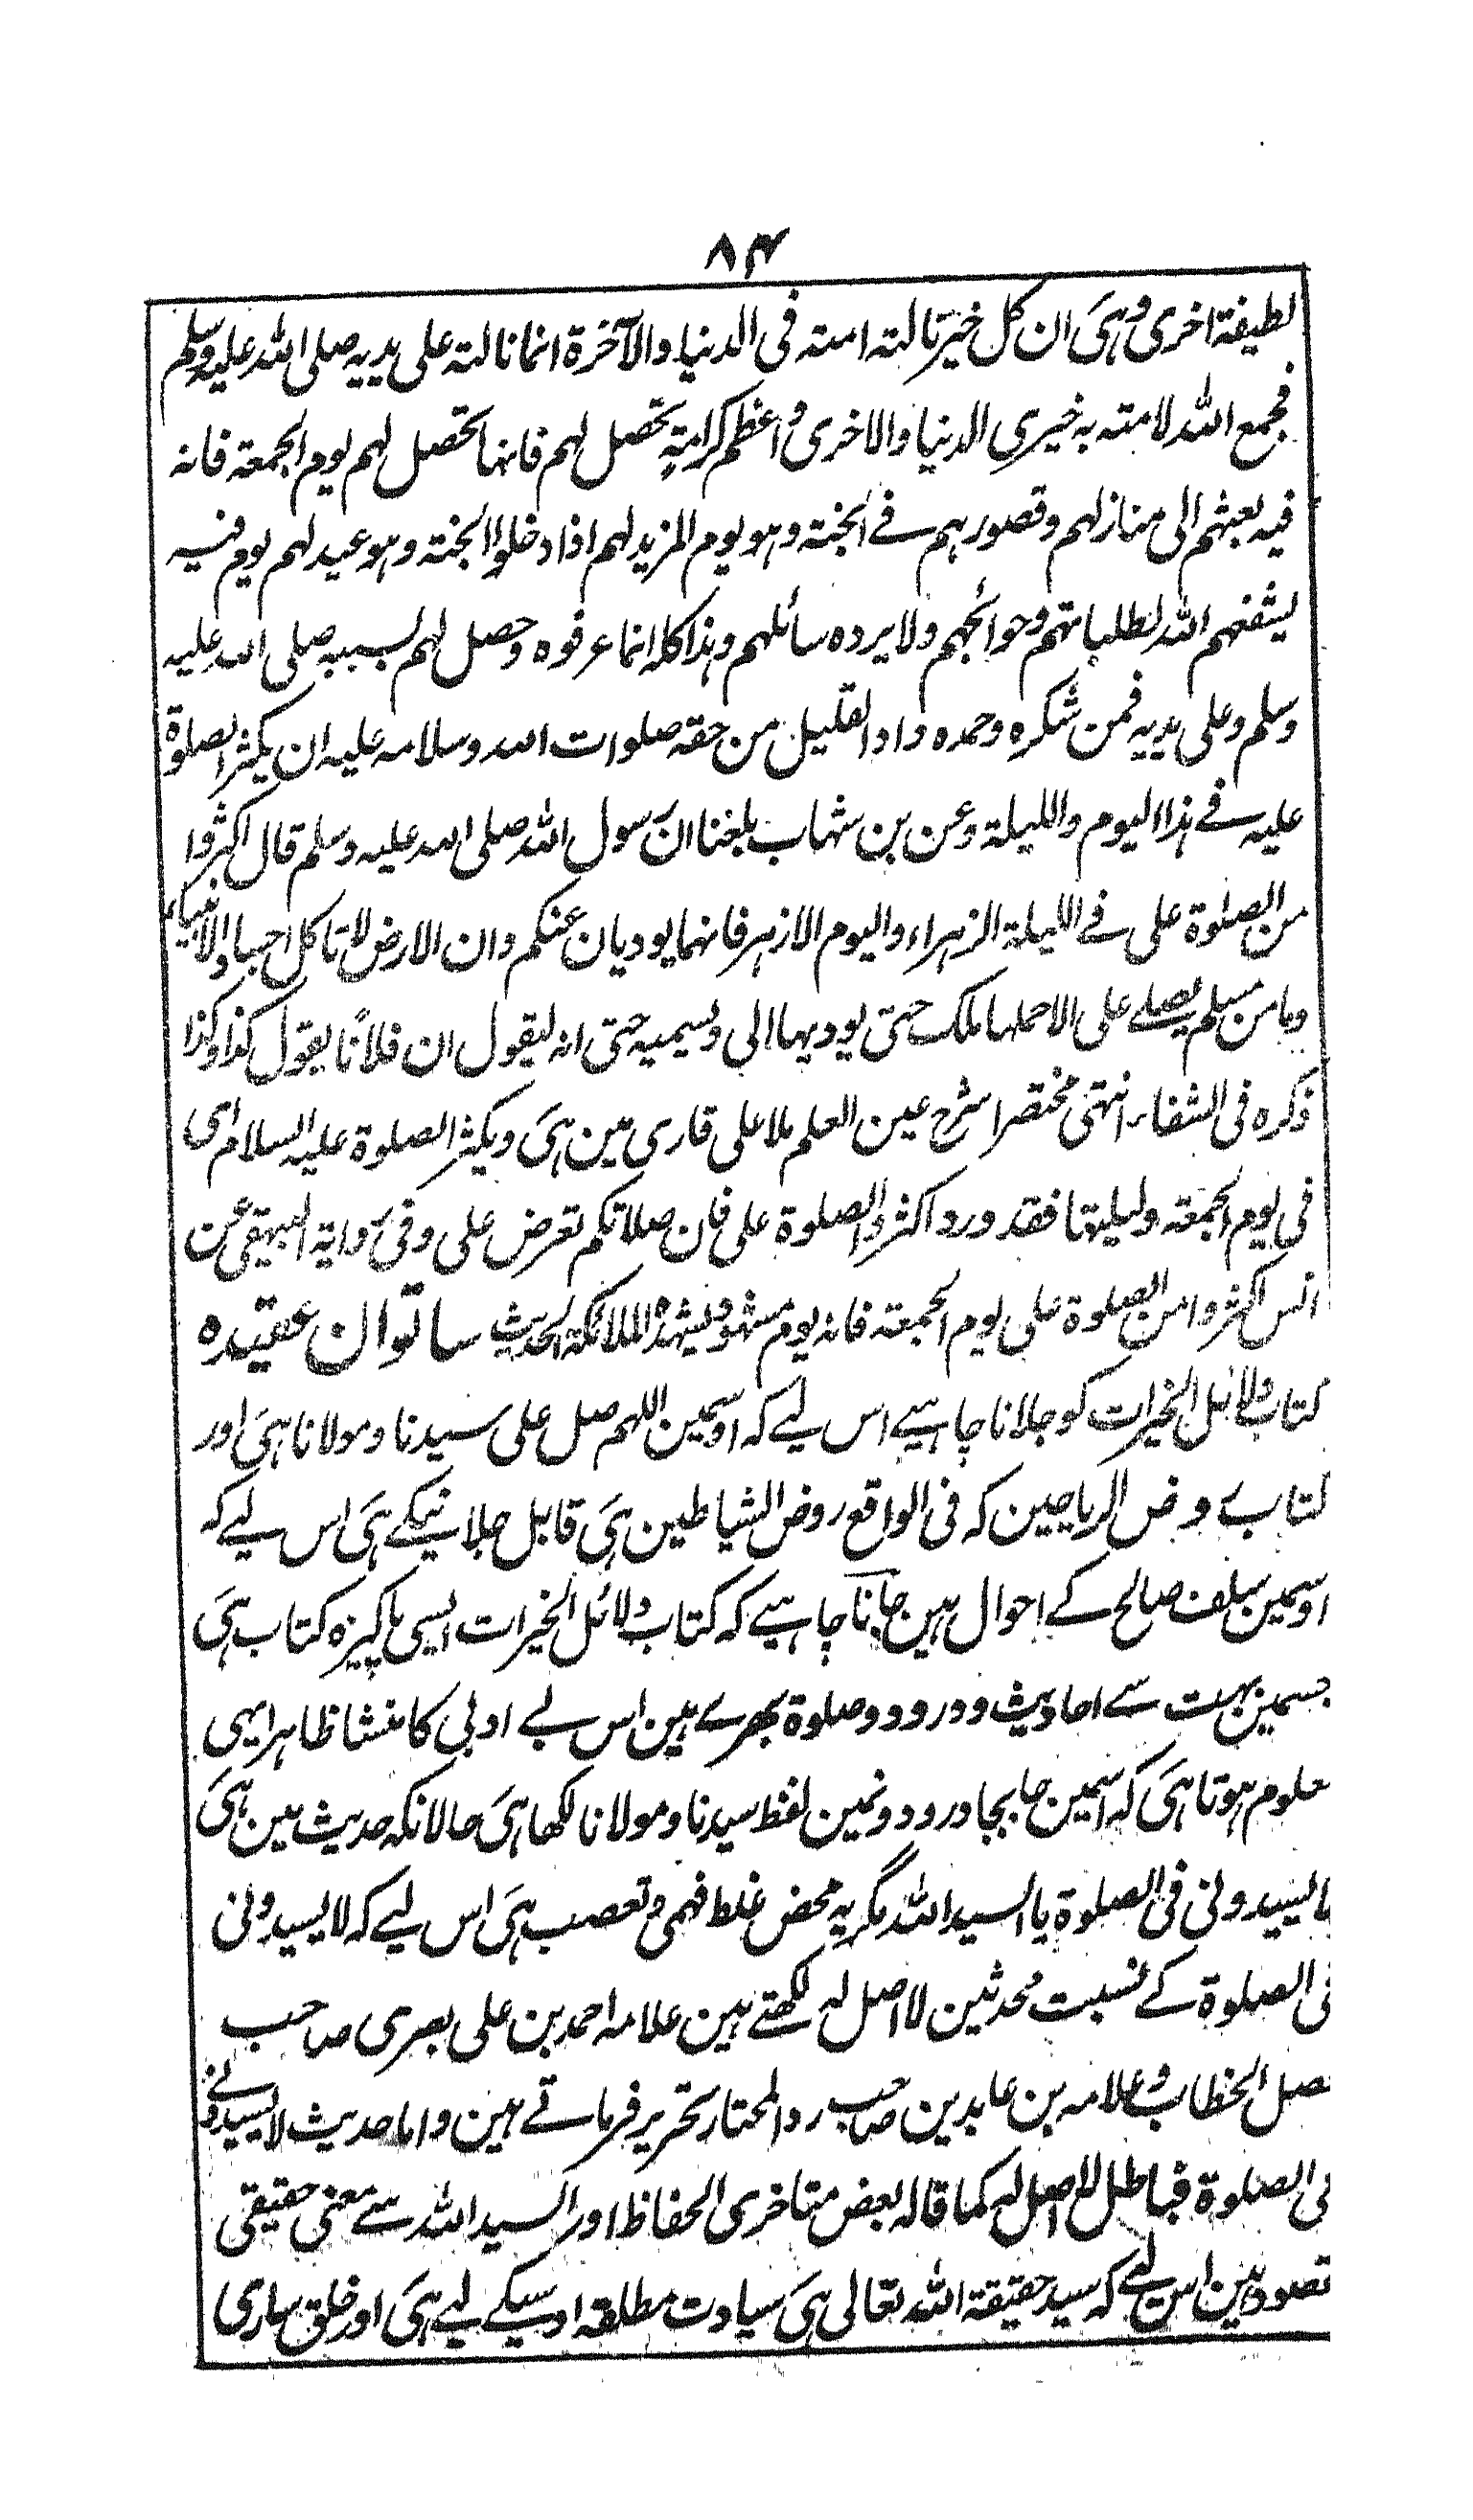 ۸۴
لطیفة اخری وہی ان کل خیر نالته امته فی الدنیا والآخرة انما نالته علی یدیه صلی اللہ علیه وسلم
فجمع اللہ لامته به خیری الدنیا والاخری واعظم کرامةٍ تحصل لہم فانہا تحصل لہم یوم الجمعة فانه
فیه بعثہم الی منازلہم وقصورہم فے الجنة وہو یوم المزید لہم اذا دخلوا الجنة وہو عید لہم یوم فیه
یشفعہم اللہ لطلباتہم وحوائجہم ولا یرده سائلہم وہذا کله انما عرفوه وحصل لہم بسببه صلی اللہ علیه
وسلم وعلی یدیه فمن شکره وحمده واداء القلیل من حقه صلوات اللہ وسلامه علیه ان یکثر الصلوة
علیه فے ہذا الیوم واللیلة وعن بن شہاب بلغنا ان رسول اللہ صلی اللہ علیه وسلم قال اکثروا
من الصلوة علی فے اللیلة الزہراء والیوم الازہر فانہما یودیان عنکم وان الارض لا تاکل اجساد الانبیاء
وما من مسلم یصلے علی الا حملہا ملک حتی یودیہا الی ویسمیه حتی انه لیقول ان فلانًا یقول کذا وکذا
ذکره فی الشفاء انتہی مختصرا شرح عین العلم ملا علی قاری مین ہی ویکثر الصلوة علیه السلام ای
فی یوم الجمعة ولیلتہا فقد ورد اکثروا الصلوة علی فان صلاتکم تعرض علی وفی روایة البیہقی عن
انس اکثروا من الصلوة علی یوم الجمعة فانه یوم مشہود یشہده الملائکة الحدیث ساتوان عقیدہ
کتاب دلائل الخیرات کو جلانا چاہیے اس لیے کہ اوسمین اللہم صل علی سیدنا ومولانا ہی اور
کتاب روض الریاحین کہ فی الواقع روض الشیاطین ہی قابل جلانیکے ہی اس لیے کہ
اوسمین سلف صالح کے احوال ہین جاننا چاہیے کہ کتاب دلائل الخیرات ایسی پاکیزہ کتاب ہی
جسمین بہت سے احادیث ودرود وصلوة بھرے ہین اس بے ادبی کا منشا ظاہرا یہی
معلوم ہوتا ہی کہ اسمین جابجا درودونمین لفظ سیدنا ومولانا لکھا ہی حالانکہ حدیث مین ہی
لا یسیدونی فی الصلوة یا السید اللہ مگر یہ محض غلط فہمی وتعصب ہی اس لیے کہ لا یسیدونی
فی الصلوة کے نسبت محدثین لا اصل لہ لکھتے ہین علامہ احمد بن علی بصری صاحب
فصل الخطاب وعلامہ بن عابدین صاحب رد المحتار تحریر فرماتے ہین واما حدیث لا یسیدونے
فی الصلوة فباطل لا اصل لہ کما قالہ بعض متاخری الحفاظ اور السید اللہ سے معنی حقیقی
مقصود ہین اس لیے کہ سید حقیقة اللہ تعالی ہی سیادت مطلقہ اوسیکے لیے ہی اور خلق ساری